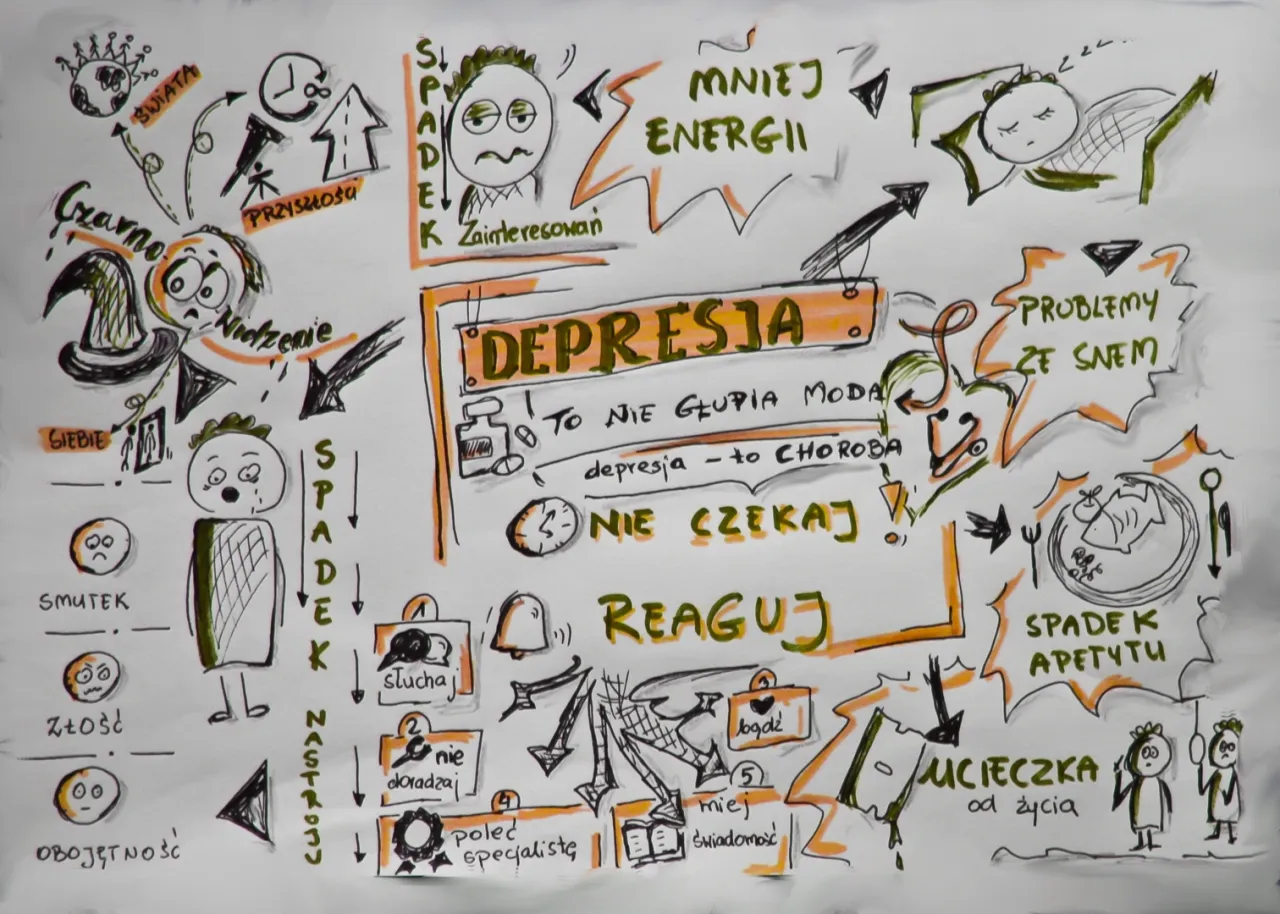 ŚWIATA
PRZYSZŁOŚCI
Czarno
Widzenie
SIEBIE
SPADEK
Zainteresowań
MNIEJ
ENERGII
z z z
PROBLEMY
ZE SNEM
DEPRESJA
TO NIE GŁUPIA MODA
depresja - to CHOROBA
NIE CZEKAJ!
REAGUJ
SPADEK
APETYTU
UCIECZKA
od życia
SPADEK NASTROJU
SMUTEK
ZŁOŚĆ
OBOJĘTNOŚĆ
1
słuchaj
2
nie
doradzaj
3
bądź
4
poleć
specjalistę
5
miej
świadomość